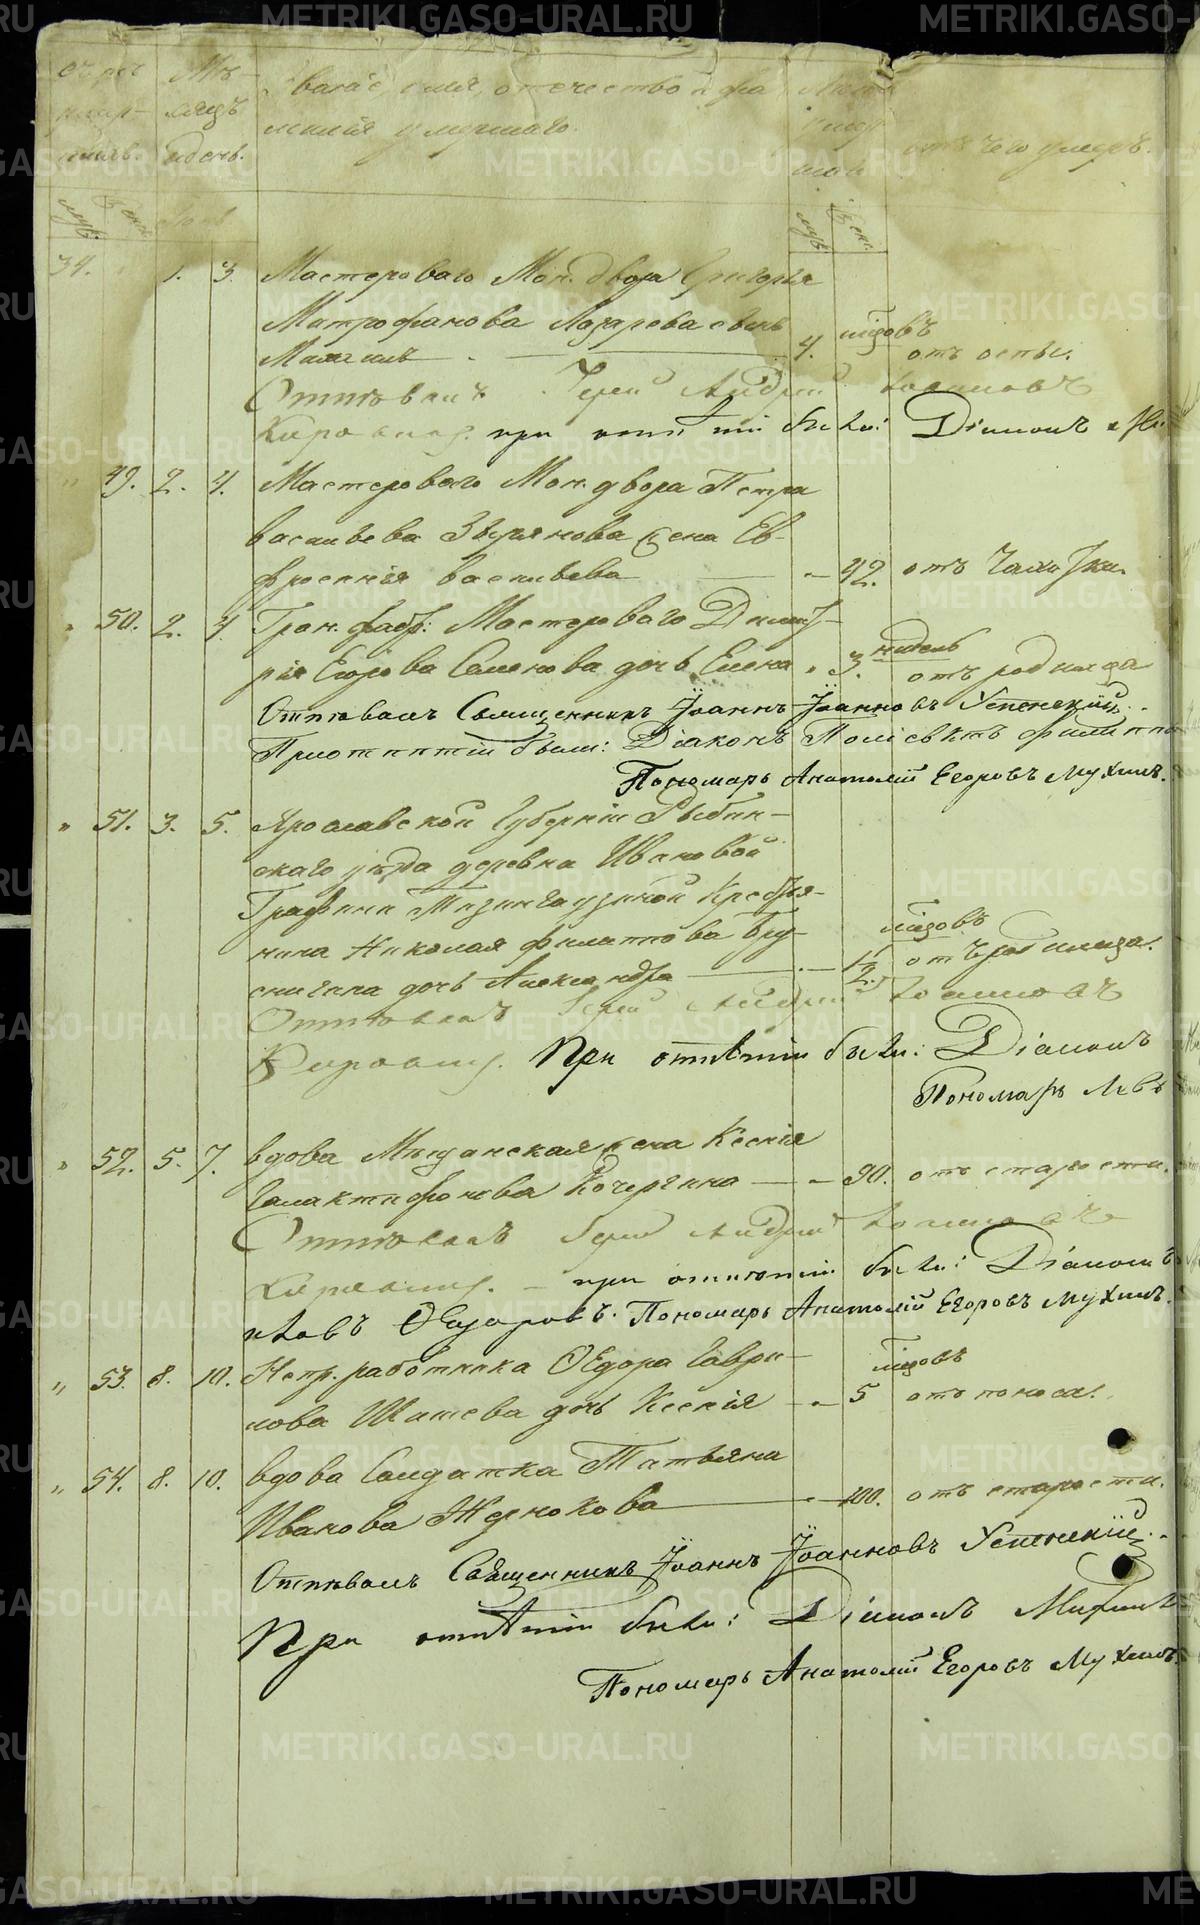 Мѣ-
званіе, имя, отечество и фа
милія умершаго.
сяцъ
и день.
отъ чего умеръ.
муж. женс.
муж. женс.
34. 1. 3. Мастероваго Мон. двора Григорья
Митрофанова Лазарева сынъ
4. годовъ
отъ оспы.
Отпѣвалъ Іерей Андрей Іоанновъ
при отпѣтіи были: Діаконъ
" 49. 2. 4. Мастероваго Мон. двора Петра
Васильева Зырянова жена Ев-
фросинія Васильева — " — 92. отъ чахотки.
" 50. 2. 4. Гран. фабр: Мастероваго Димит-
рія Егорова Саленова дочь Елена " 3. недель
отъ родимца
Отпѣвалъ Священникъ Іоаннъ Іоанновъ Успенскій.
При отпѣтіи были: Діаконъ Поліевктъ Филиппо
Пономарь Анатолій Егоровъ Мухинъ.
" 51. 3. 5. Ярославской Губерніи Рыбин-
скаго уѣзда деревни Ивановой
Графини Крестья-
нина Николая Филиппова
дочь Александра — " — 1/2. годовъ
отъ родимца.
Отпѣвалъ Іерей Андрей Іоанновъ
При отпѣтіи были: Діаконъ
Пономарь Левъ
" 52. 5. 7. вдова Мѣщанская жена Ксенія
Галактіонова Кочергина — " 90. отъ старости.
Отпѣвалъ Іерей Андрей Іоанновъ
при отпѣтіи были: Діаконъ
Ѳедоровъ. Пономарь Анатолій Егоровъ Мухинъ.
" 53. 8. 10. Непр. работника Ѳедора Гаври-
лова дочь Ксенія — " 5 годовъ
отъ поноса.
" 54. 8. 10. вдова Салдатка Татьяна
Иванова Жернокова — " — 100. отъ старости.
Отпѣвалъ Священникъ Іоаннъ Іоанновъ Успенскій.
При отпѣтіи были: Діаконъ
Пономарь Анатолій Егоровъ Мухинъ.
METRIKI.GASO-URAL.RU